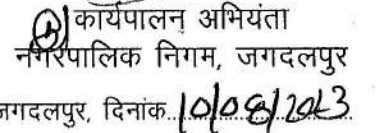 कार्यपालन अभियंता
नगरपालिक निगम, जगदलपुर
जगदलपुर, दिनांक..10/08/2023